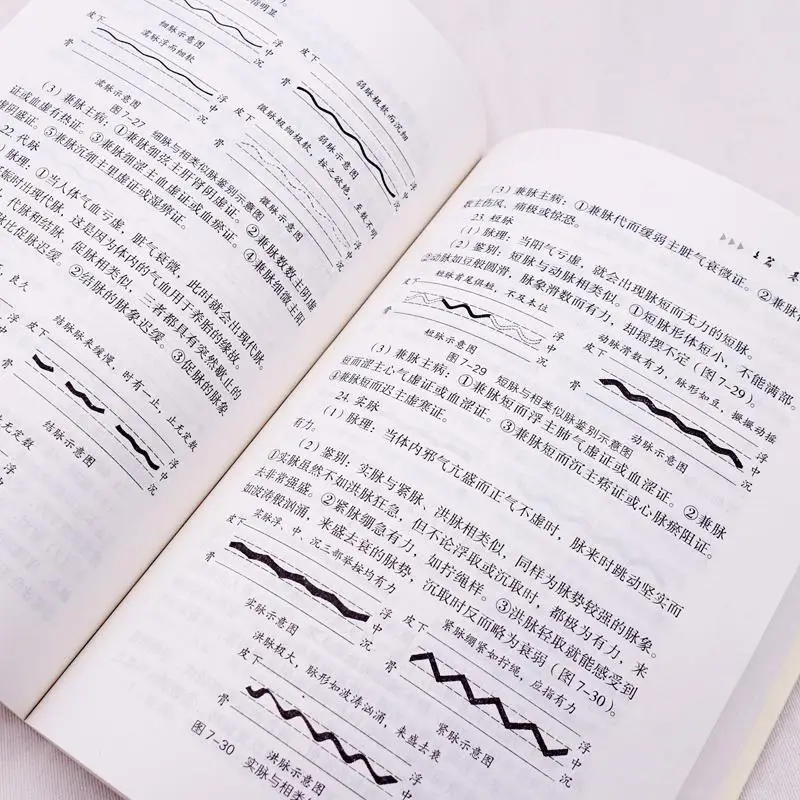 指明显
细脉示意图
皮下
濡脉浮而细软
浮
中
沉
骨
濡脉示意图
图 7-27 细脉与相类似脉鉴别示意图
皮下
弱脉极软而沉细
浮
中
沉
骨
弱脉示意图
皮下
微脉极细极软，按之欲绝，至数不明
浮
中
沉
骨
微脉示意图
(3) 兼脉主病：①兼脉细弦主肝肾阴虚证。②兼脉数数主阴虚
证或血虚有热证。③兼脉细涩主血虚证或血瘀证。④兼脉细微主阳
虚阴盛证。⑤兼脉沉细主里虚证或湿痹证。
22. 代脉
脉理：①当人体气血亏虚，脏气衰微，此时就会出现代脉。
妊娠时出现代脉，这是因为体内的气血用于养胎的缘故。
代脉和结脉、促脉相类似，三者都具有突然歇止的
脉比促脉迟缓。②结脉的脉象迟缓。③促脉的脉象
良久
皮下
结脉脉来缓慢，时有一止，止无定数
浮
中
沉
骨
结脉示意图
止无定数
浮
中
沉
(3) 兼脉主病：①兼脉代而缓弱主脏气衰微证。②兼脉
数主伤风、痛极或惊恐。
23. 短脉
(1) 脉理：当阳气亏虚，就会出现脉短而无力的短脉。
(2) 鉴别：短脉与动脉相类似。①短脉形体短小，不能满部。
②动脉如豆般圆滑，脉象滑数而有力，却摇摆不定（图 7-29）。
皮下
短脉首尾俱短，不及本位
浮
中
沉
骨
短脉示意图
皮下
动脉滑数有力，脉形如豆，摇摇动摇
浮
中
沉
骨
动脉示意图
图 7-29 短脉与相类似脉鉴别示意图
(3) 兼脉主病：①兼脉短而浮主肺气虚证或血涩证。②兼脉
短而涩主心气虚证或血涩证。③兼脉短而沉主痞证或心脉瘀阻证。
④兼脉短而迟主虚寒证。
24. 实脉
(1) 脉理：当体内邪气亢盛而正气不虚时，脉来时跳动坚实而
有力。
(2) 鉴别：实脉与紧脉、洪脉相类似，同样为脉势较强的脉象。
①实脉虽然不如洪脉狂急，但不论浮取或沉取时，都极为有力，来
去非常强盛。②紧脉绷急有力，如拧绳样。③洪脉轻取就能感受到
如波涛般汹涌，来盛去衰的脉势，沉取时反而略为衰弱（图 7-30）。
皮下
实脉浮、中、沉三部举按均有力
浮
中
沉
骨
实脉示意图
皮下
紧脉绷紧如拧绳，应指有力
浮
中
沉
骨
紧脉示意图
皮下
洪脉极大，脉形如波涛汹涌，来盛去衰
浮
中
沉
骨
洪脉示意图
图 7-30 实脉与相类